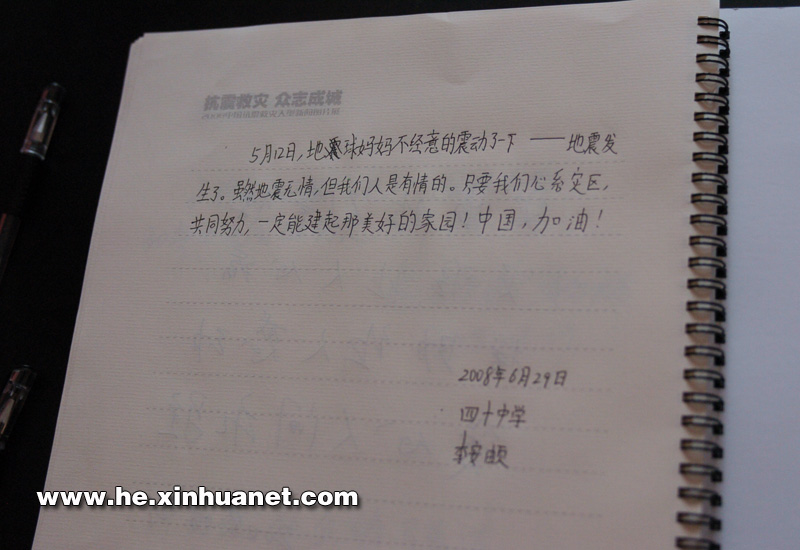 抗震救灾 众志成城
5月12日，地球妈妈不经意的震动了一下——地震发
生了。虽然地震无情，但我们人是有情的。只要我们心系灾区，
共同努力，一定能建起那美好的家园！中国，加油！
2008年6月29日
四十中学
www.he.xinhuanet.com